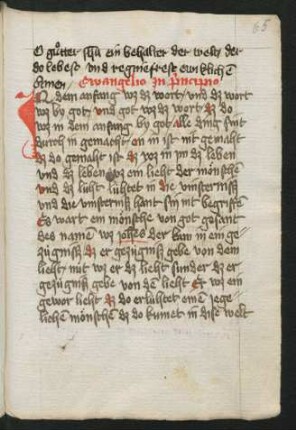 65
O gůtter ihesu ein behalter der welt der
do lebest vnd regnierest ewiklichē
Amen Ewangelio In principio
In dem anfang wz dz wort / vnd dz wort
wz by got / vnd got wz dz wort / dz do
wz in dem anfang by got alle ding sint
durch in gemacht on in ist nit gemaht
dz do gemaht ist dz wz in im dz leben
vnd dz leben wz ein lieht der mönsche
vnd dz lieht lúhtet in die vinsternisß
vnd die vinsterniß hant sin nit begriffē
Es wart ein mönsche von got gesant
des namen wz johēs der kam in ein ge-
zúgnisß dz er gezúgniß gebe von dem
lieht / nút wz er dz lieht sunder dz er
gezúgniß gebe von dē lieht Es wz ein
gewor lieht dz do erlúhtet einē jege
lichen mönschen dz do kumet in dise welt